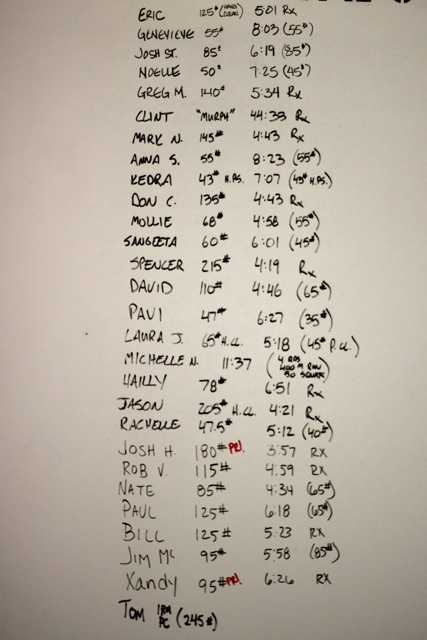 ERIC 125# (HANG CLEAN) 5:01 Rx
GENEVIEVE 55# 8:03 (55#)
JOSH ST. 85# 6:19 (85#)
NOELLE 50# 7:25 (45#)
GREG M. 140# 5:34 Rx
CLINT "MURPH" 44:33 Rx
MARK N. 145# 4:43 Rx
ANNA S. 55# 8:23 (55#)
KEDRA 43# H.PS. 7:07 (43# H.PS.)
DON C. 135# 4:43 Rx
MOLLIE 68# 4:58 (55#)
SANGEETA 60# 6:01 (45#)
SPENCER 215# 4:19 Rx
DAVID 110# 4:46 (65#)
PAVI 47# 6:27 (35#)
LAURA J. 65# H.CL. 5:18 (45# P.CL.)
MICHELLE N. 11:37 (4 RDS 400 M RUN 50 SQUATS)
HAILLY 78# 6:51 Rx
JASON 205# H.CL. 4:21 Rx
RACHELLE 47.5# 5:12 (40#)
JOSH H. 180# PR! 3:57 RX
ROB V. 115# 4:59 RX
NATE 85# 4:34 (65#)
PAUL 125# 6:18 (65#)
BILL 125# 5:23 RX
JIM Mc 95# 5:58 (85#)
Xandy 95# PR! 6:26 RX
TOM 1RM PC (245#)